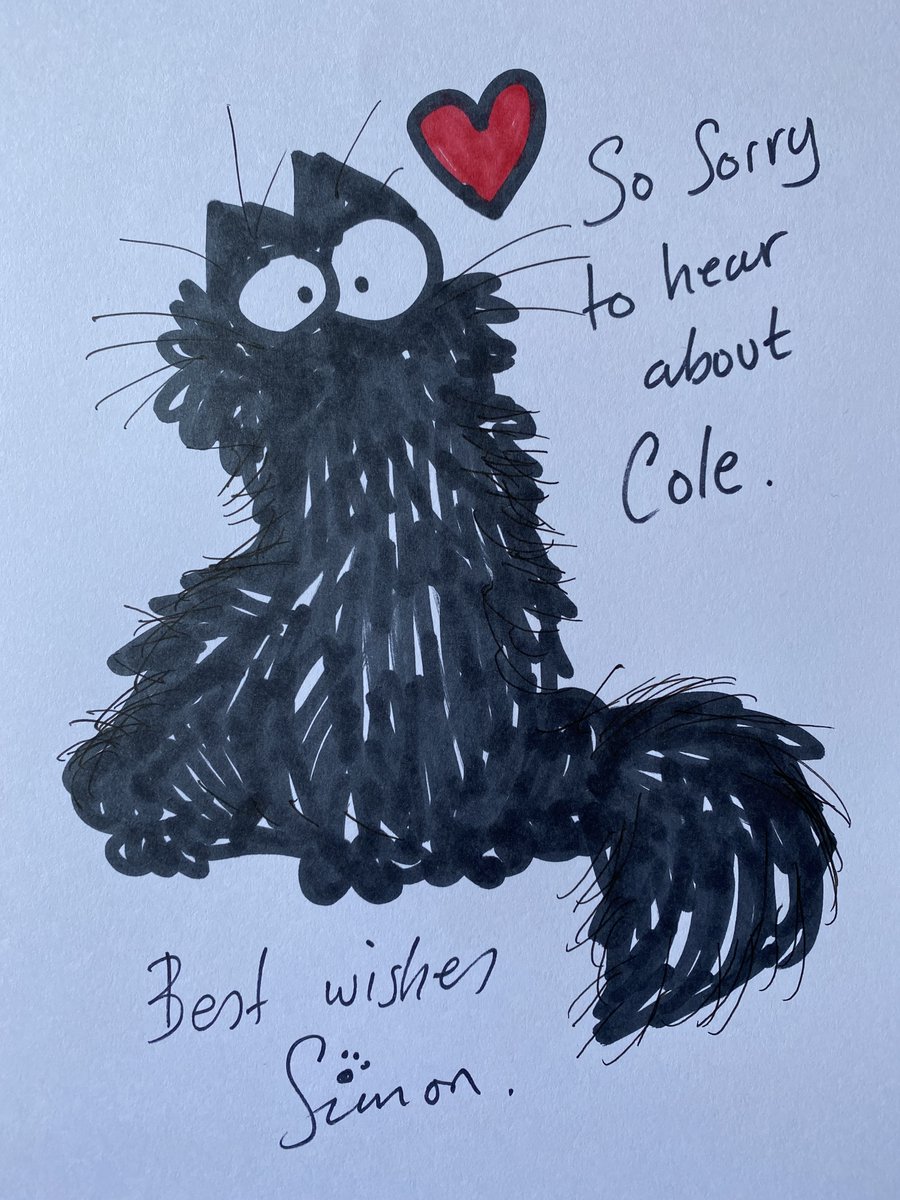 So Sorry
to hear
about
Cole.
Best wishes
Simon.